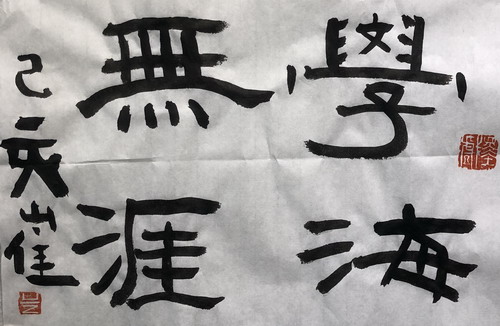 學海
無涯
己亥崔